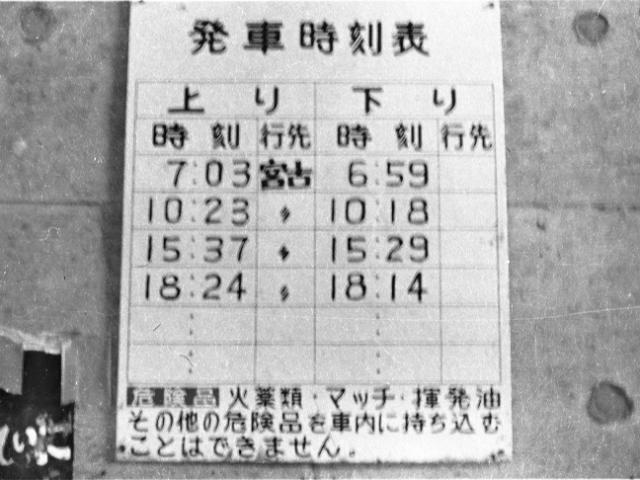 発車時刻表
上り 下り
時刻 行先 時刻 行先
7:03 宮古 6:59
10:23 〃 10:18
15:37 〃 15:29
18:24 〃 18:14
: :
: :
危険品 火薬類・マッチ・揮発油
その他の危険品を車内に持ち込む
ことはできません。